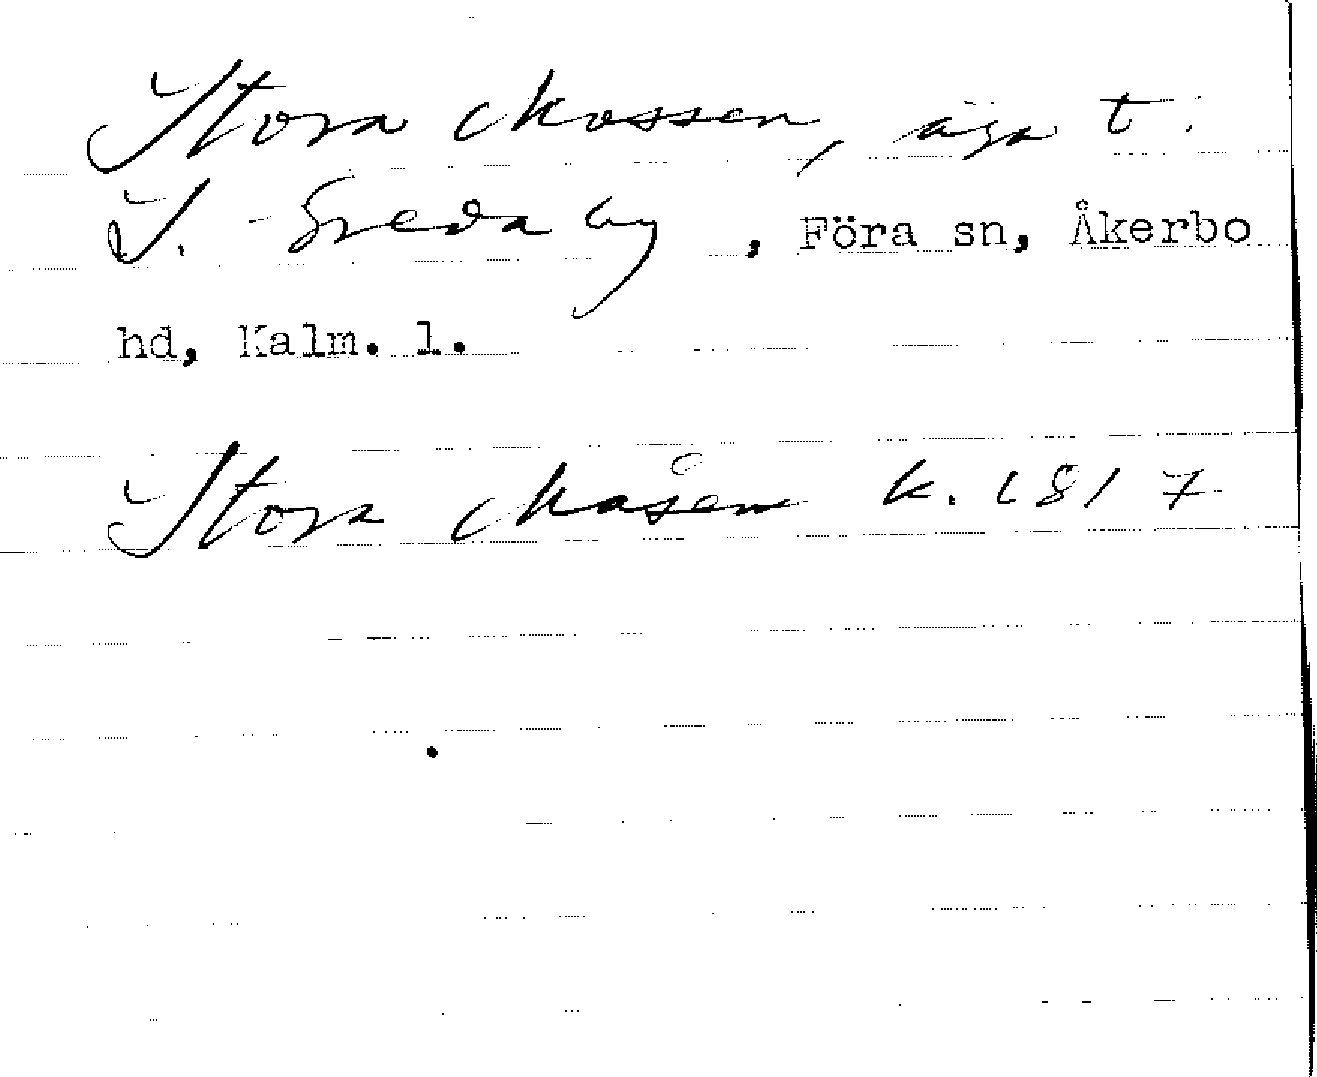 Stora Mossen, äga t.
S. Greda by, Föra sn, Åkerbo
hd, Kalm. l.
Stora Måsen k. 1817